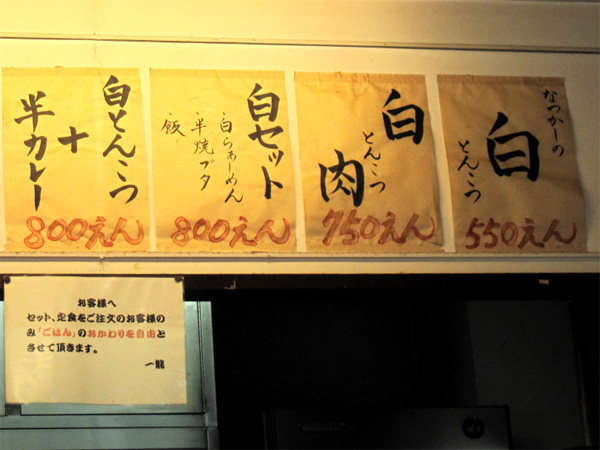 なつかしの
白
とんこつ
550えん
白
とんこつ
肉
750えん
白セット
・白らぁーめん
・半焼ブタ
・飯
800えん
白とんこつ
+
半カレー
800えん
お客様へ
セット、定食をご注文のお客様の
み「ごはん」のおかわりを自由と
させて頂きます。
一龍